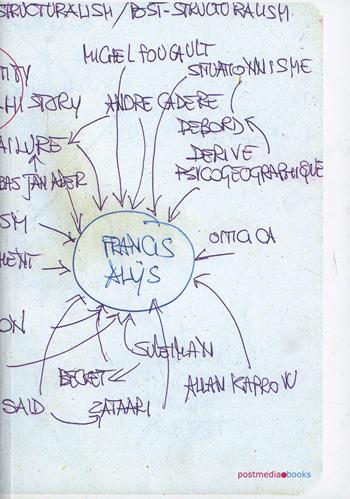 STRUCTURALISM / POST-STRUCTURALISM
MICHEL FOUCAULT
SITUATIONNISME
TITY
HISTORY
ANDRE CADERE
DEBORD
AILURE
DERIVE
PSYCOGEOGRAPHIQUE
BAS JAN ADER
SM
FRANCIS
ALŸS
OITICICA
MENT
ON
SULEIMAN
BECKET
ALLAN KAPROW
SAID
ZATAARI
postmedia books